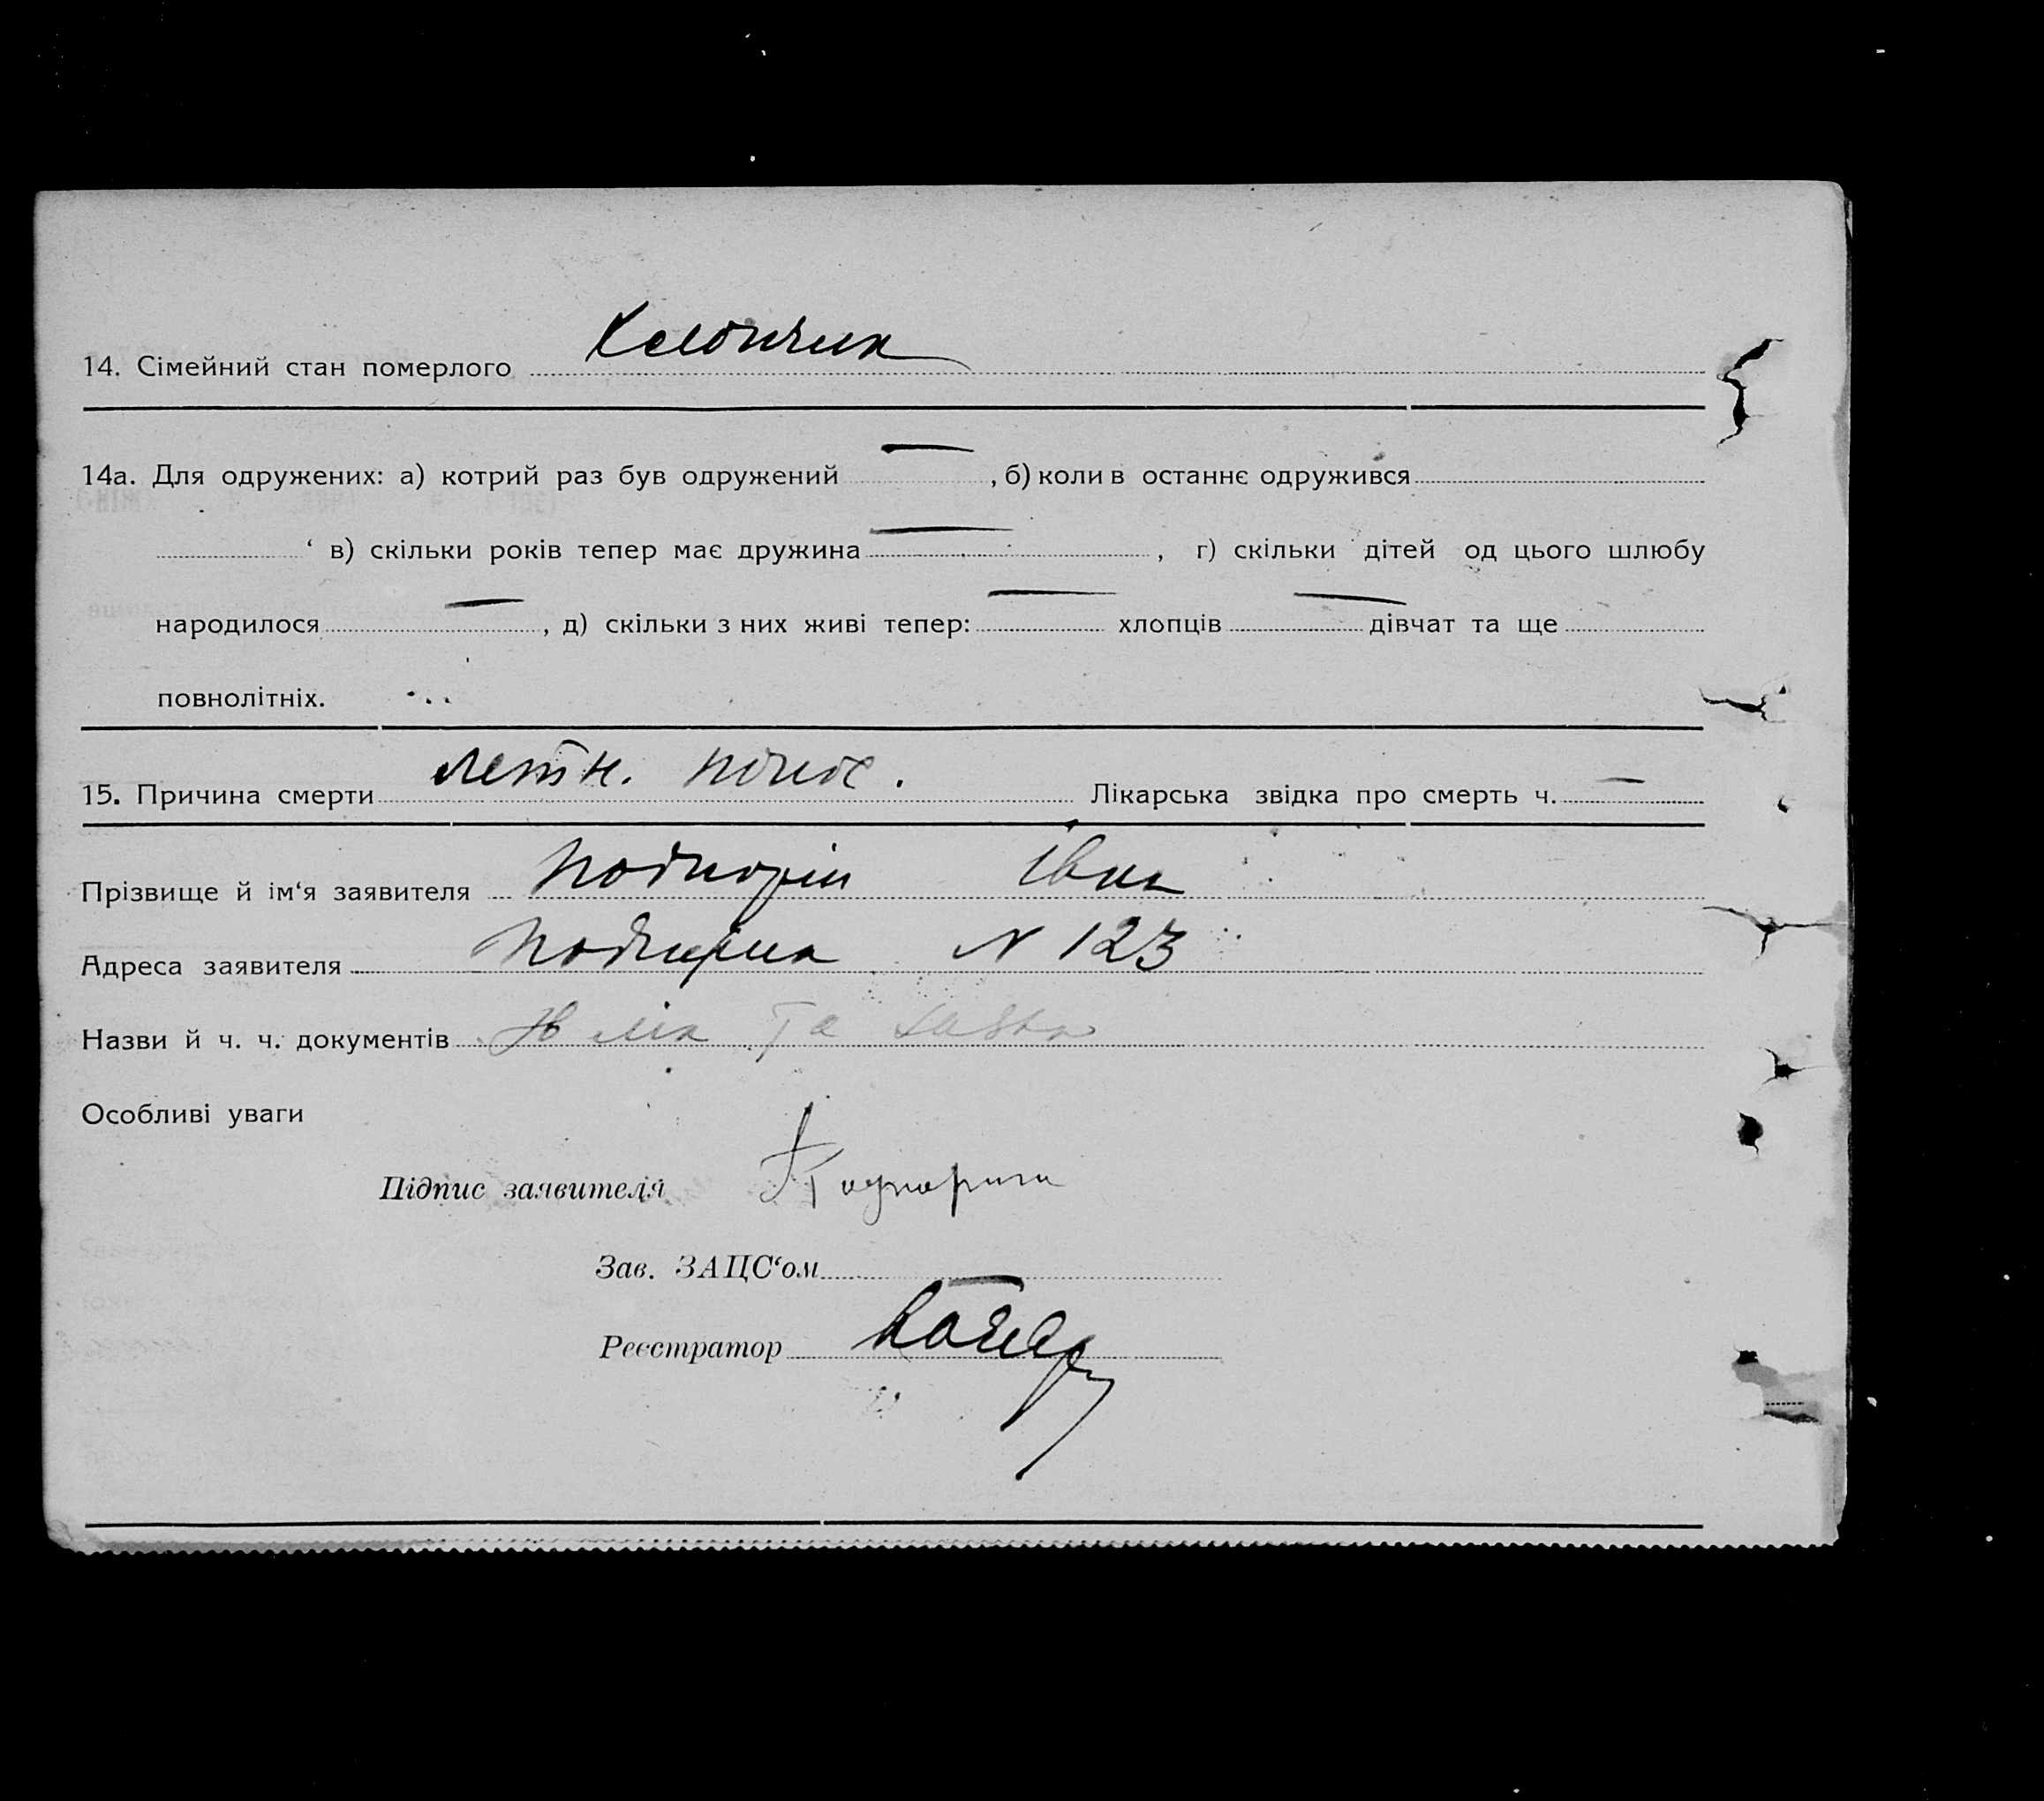 14. Сімейний стан померлого Хлопчик
14а. Для одружених: а) котрий раз був одружений — , б) коли в останнє одружився
‘ в) скільки років тепер має дружина — , г) скільки дітей од цього шлюбу
народилося — , д) скільки з них живі тепер: — хлопців — дівчат та ще
повнолітніх.
15. Причина смерти летн. понос. Лікарська звідка про смерть ч. —
Прізвище й ім‘я заявителя Іван
Адреса заявителя N 123
Назви й ч. ч. документів та
Особливі уваги
Підпис заявителя
Зав. ЗАЦС‘ом —
Реєстратор